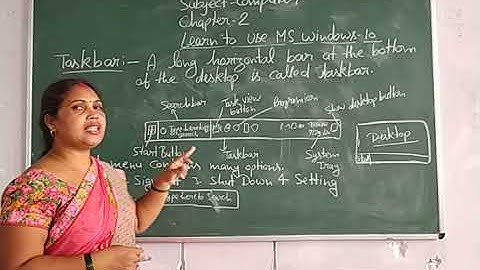 Subject-Computer
Chapter-2
Learn to use MS Windows-10
Taskbar:- A long horizontal bar at the bottom
of the desktop is called Taskbar.
Searchbar Task view button Program icon Show desktop button
Type here to search
Start Button Taskbar System Tray
Desktop
menu contains many options.
Sign 3. Shut Down 4 Setting
Type here to Search